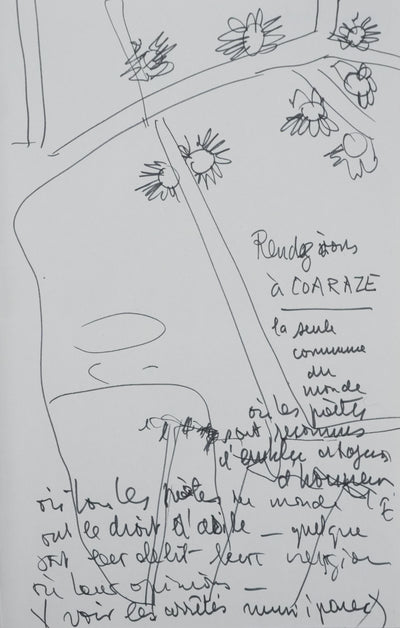 Rendez-vous
à COARAZE
la seule
commune
du
monde
où les poètes
sont reconnus
d'emblée citoyens
d'honneur
où tous les poètes du monde
ont le droit d'asile – quelque
soit leur délit – leur religion
ou leur opinion –
(voir les arrêtés municipaux)